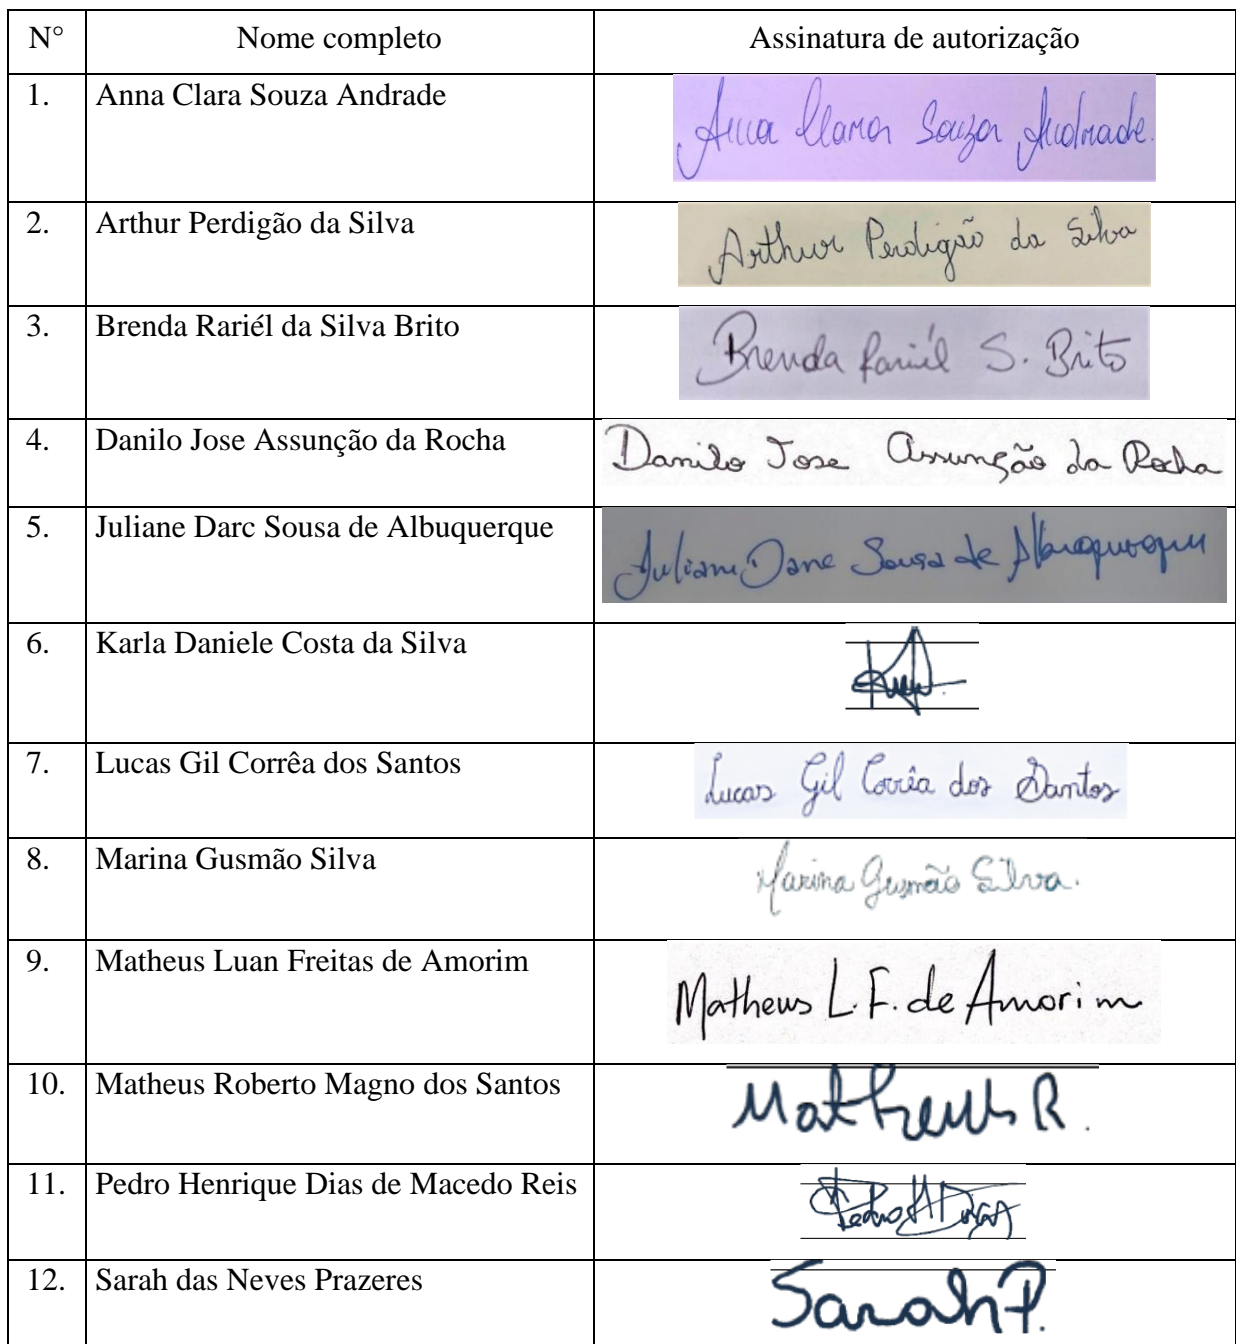 N° Nome completo Assinatura de autorização
1. Anna Clara Souza Andrade Anna Clara Souza Andrade.
2. Arthur Perdigão da Silva Arthur Perdigão da Silva
3. Brenda Rariél da Silva Brito Brenda Rariél S. Brito
4. Danilo Jose Assunção da Rocha Danilo Jose Assunção da Rocha
5. Juliane Darc Sousa de Albuquerque Juliane Darc Sousa de Albuquerque
6. Karla Daniele Costa da Silva
7. Lucas Gil Corrêa dos Santos Lucas Gil Corrêa dos Santos
8. Marina Gusmão Silva Marina Gusmão Silva.
9. Matheus Luan Freitas de Amorim Matheus L. F. de Amorim
10. Matheus Roberto Magno dos Santos Matheus R.
11. Pedro Henrique Dias de Macedo Reis Pedro H Dias
12. Sarah das Neves Prazeres Sarah P.